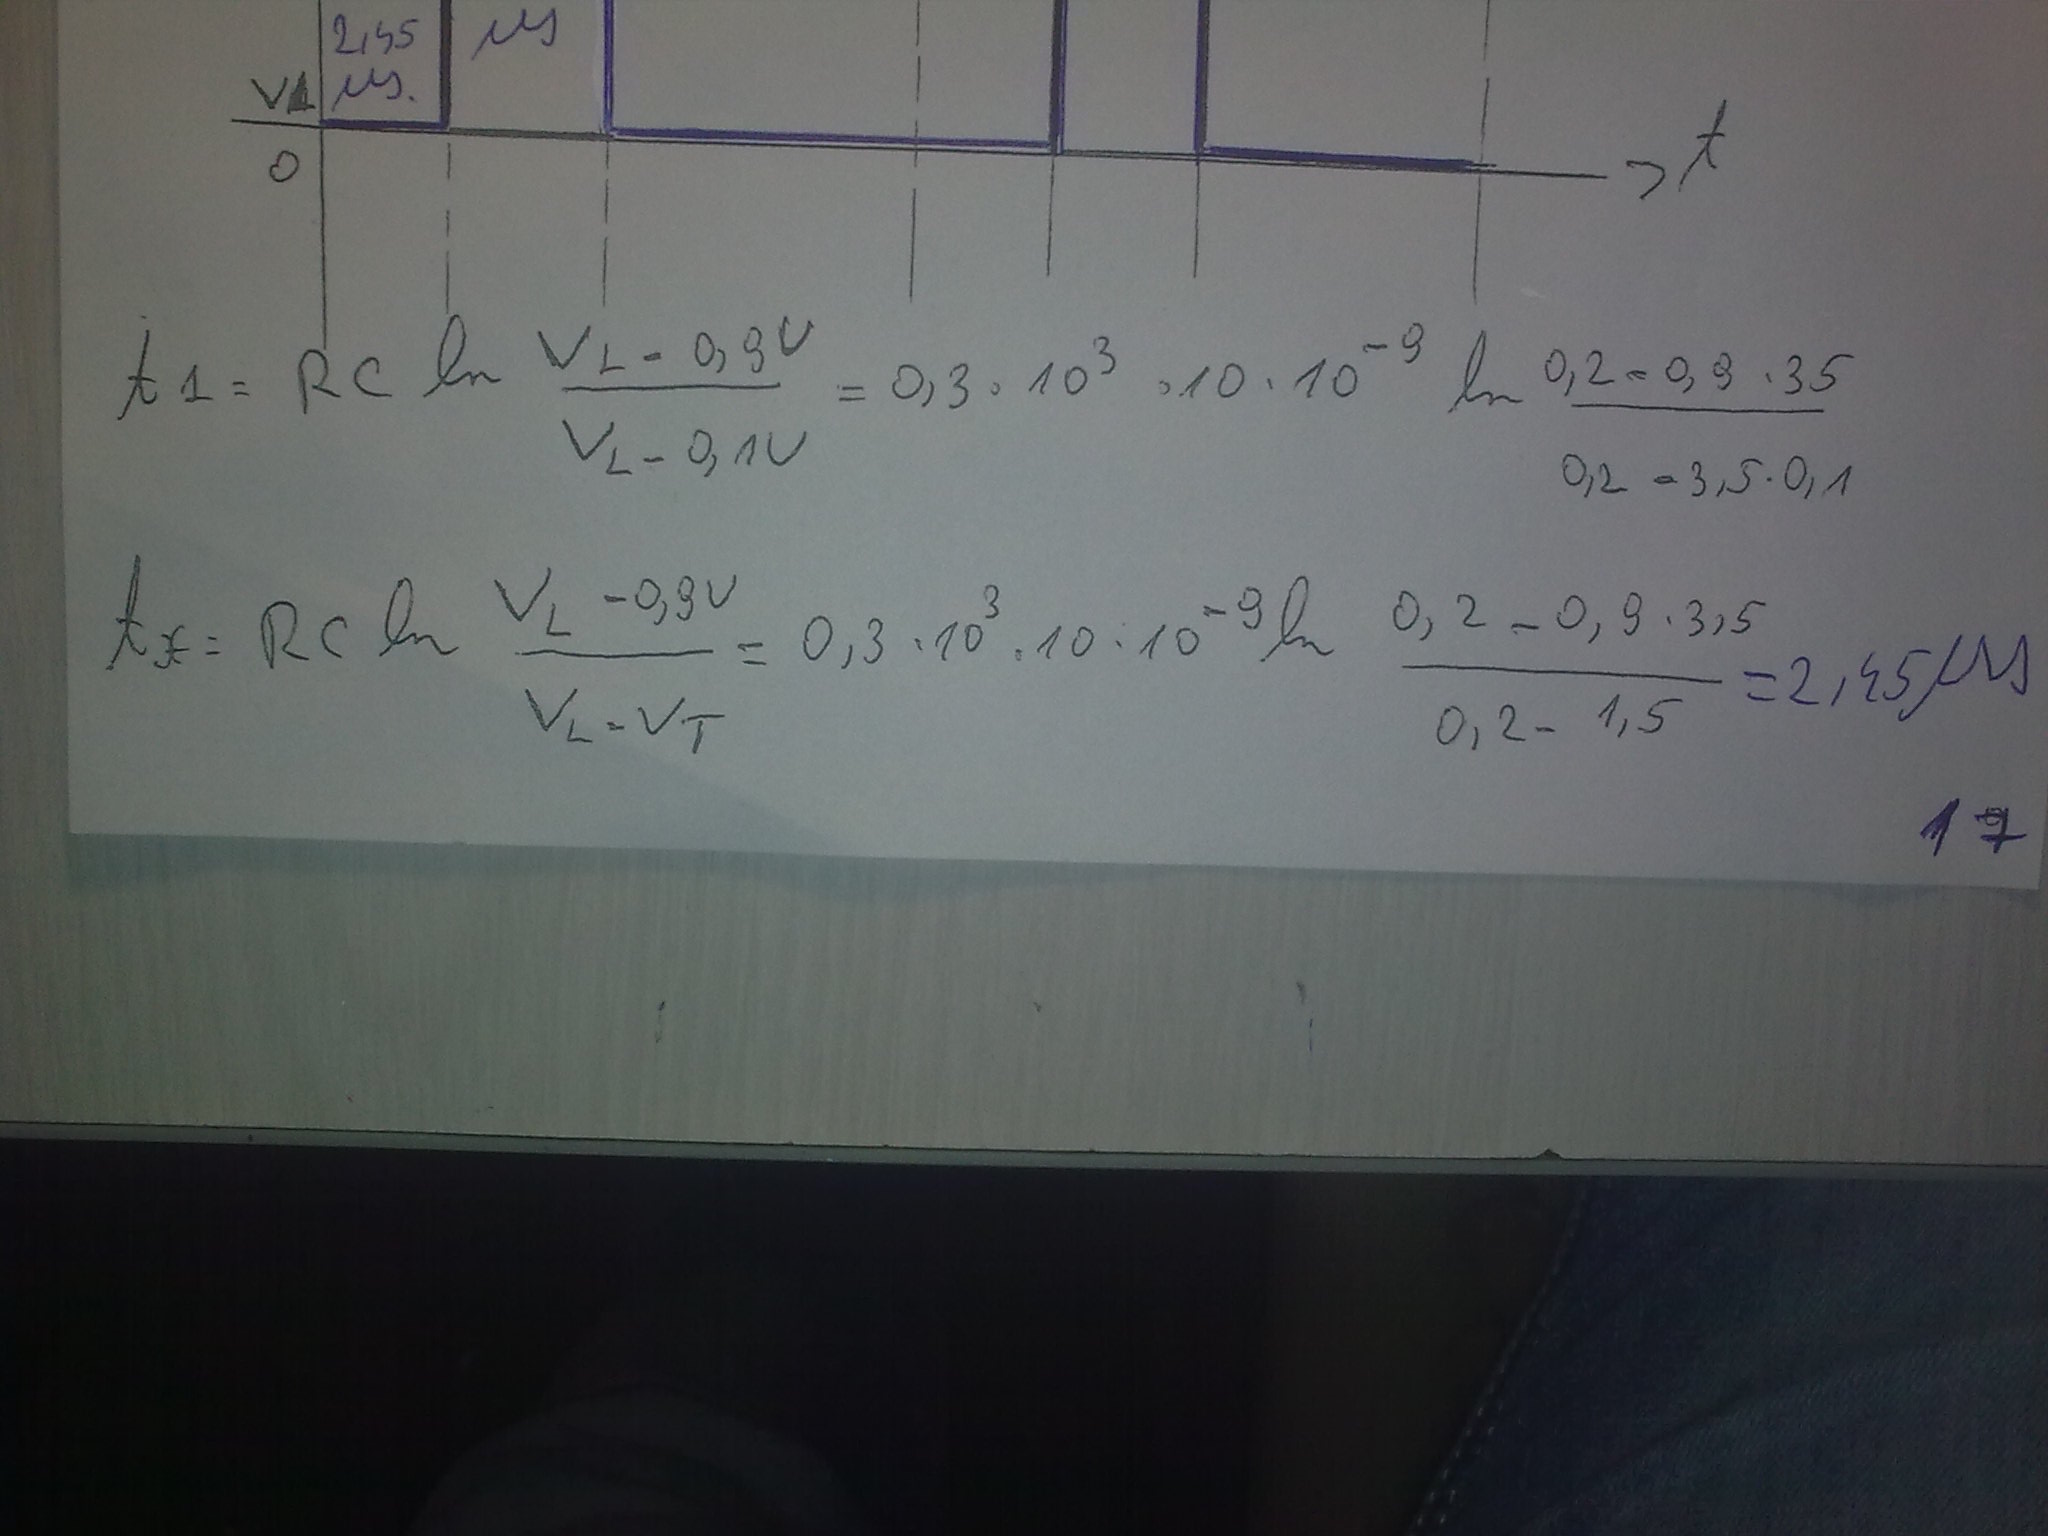 2,45 μs
V1 μs.
0 > t
t1 = RC ln (VL - 0,9V) / (VL - 0,1V) = 0,3 · 10³ · 10 · 10⁻⁹ ln (0,2 - 0,9 · 35) / (0,2 - 3,5 · 0,1)
tx = RC ln (VL - 0,9V) / (VL - VT) = 0,3 · 10³ · 10 · 10⁻⁹ ln (0,2 - 0,9 · 3,5) / (0,2 - 1,5) = 2,45 μs
17